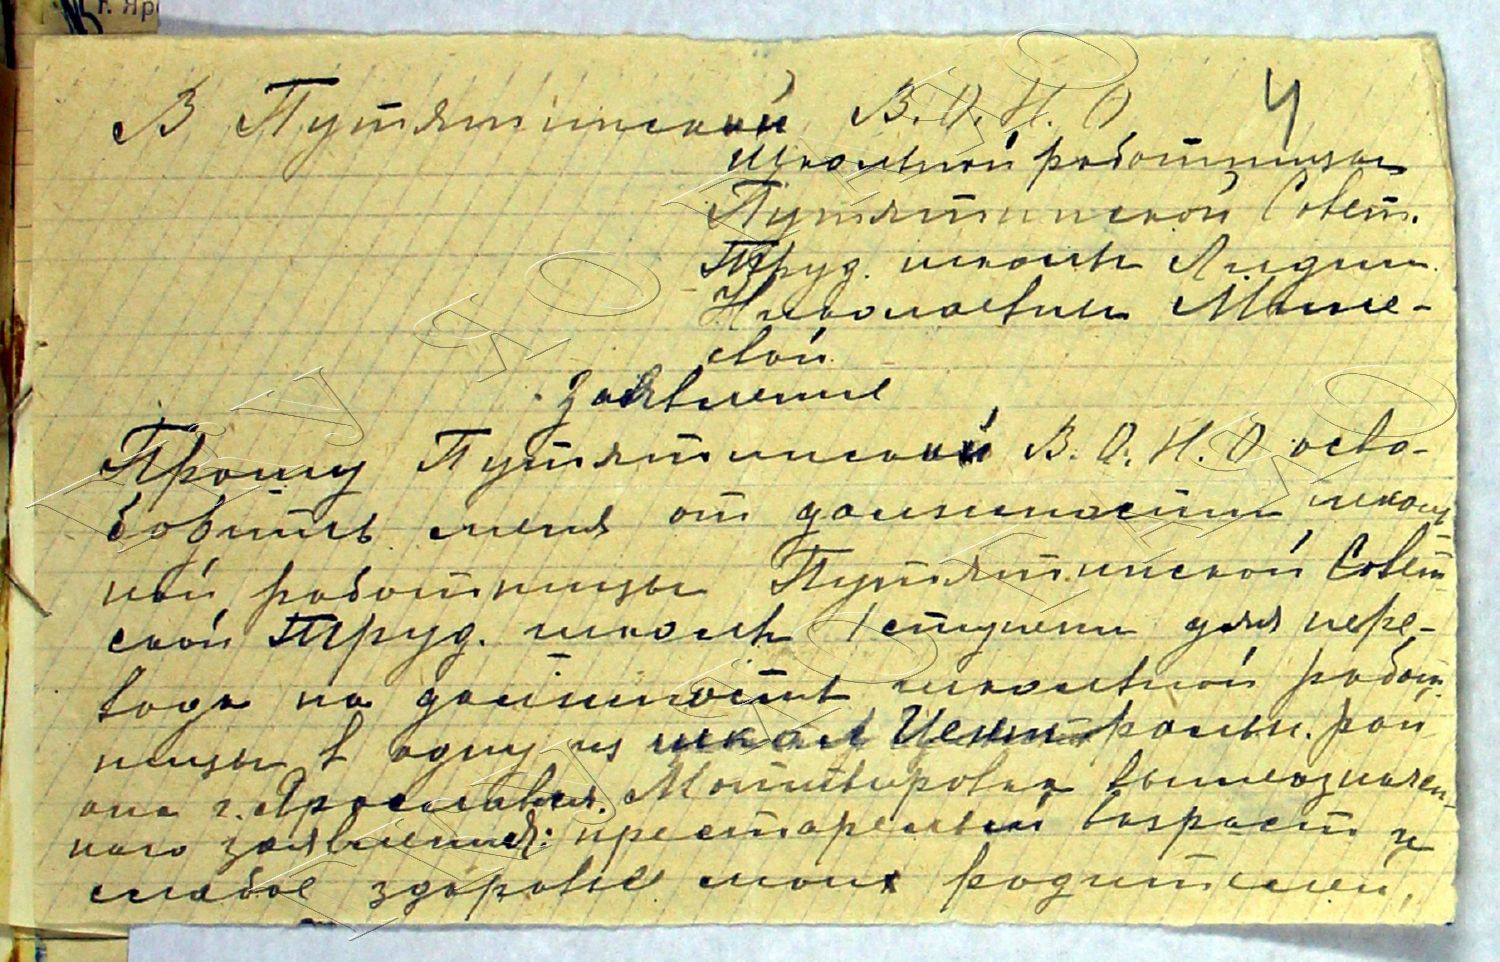 г. Яро
В Путятинский В.О.Н.О 4
Школьной работницы
Путятинской Совет.
Труд. школы Лидии
Николаевны
свой
Заявление
Прошу Путятинский В.О.Н.О осво-
бодить меня от должности школь
ной работницы Путятинской Совет
ской Труд. школы I ступени для пере-
вода на должность школьной работ
ницы в одну из школ Централь. рай
она г. Ярославля. Мотивировка вышеозначен-
ного заявления: престарелый возраст и
слабое здоровье моих родителей,